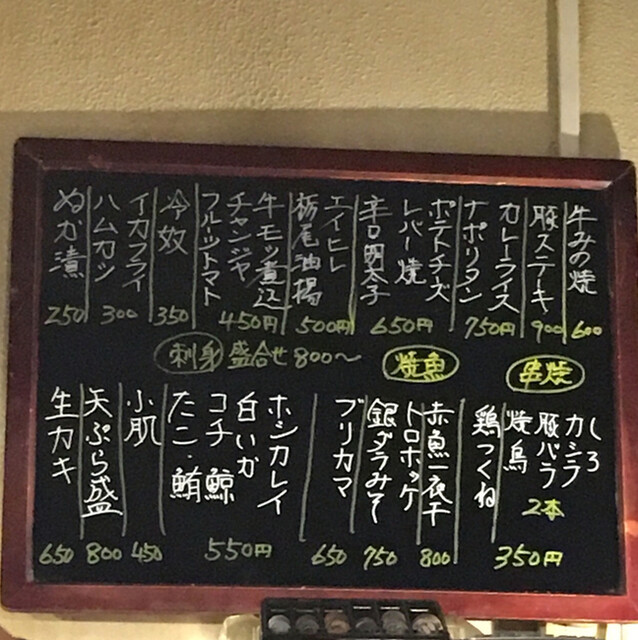 牛みの焼
600
豚ステーキ
900
カレーライス
ナポリタン
750円
ポテトチーズ
レバー焼
辛口明太子
650円
エイヒレ
栃尾油揚
500円
牛モツ煮込
チャンジャ
フルーツトマト
450円
冷奴
350
イカフライ
ハムカツ
300
ぬか漬
250
串焼
しろ
カシラ
豚バラ
焼鳥
2本
鶏つくね
350円
焼魚
赤魚一夜干
800
トロホッケ
銀ダラみそ
750
ブリカマ
650
刺身 盛合せ 800〜
ホシカレイ
白いか
コチ 鯨
たこ・鮪
550円
小肌
450
天ぷら盛
800
生カキ
650